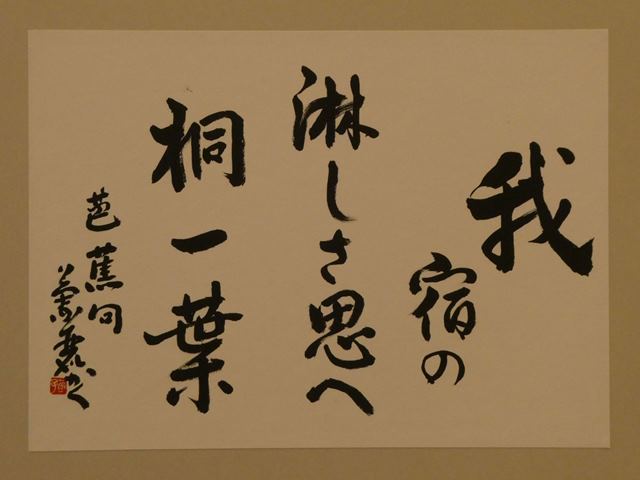 我
宿の
淋しさ思へ
桐一葉
芭蕉句